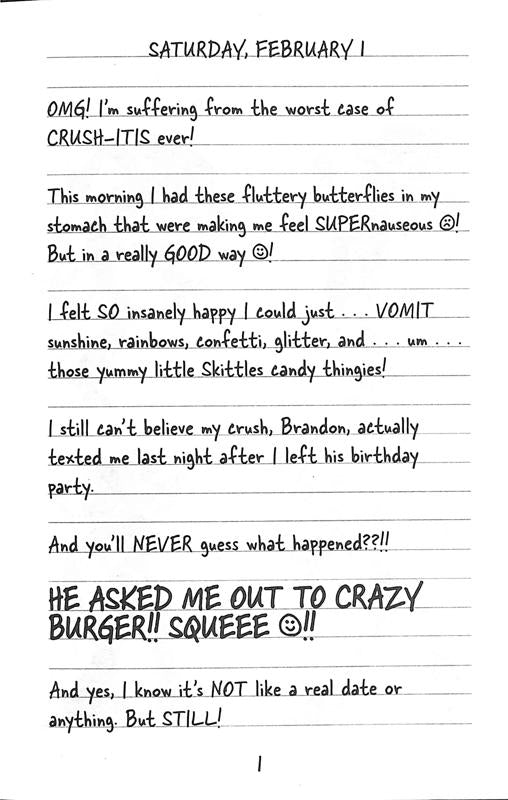 SATURDAY, FEBRUARY 1
OMG! I'm suffering from the worst case of
CRUSH-ITIS ever!
This morning I had these fluttery butterflies in my
stomach that were making me feel SUPERnauseous ☹!
But in a really GOOD way ☺!
I felt SO insanely happy I could just . . . VOMIT
sunshine, rainbows, confetti, glitter, and . . . um . . .
those yummy little Skittles candy thingies!
I still can't believe my crush, Brandon, actually
texted me last night after I left his birthday
party.
And you'll NEVER guess what happened??!!
HE ASKED ME OUT TO CRAZY
BURGER!! SQUEEE ☺!!
And yes, I know it's NOT like a real date or
anything. But STILL!
1